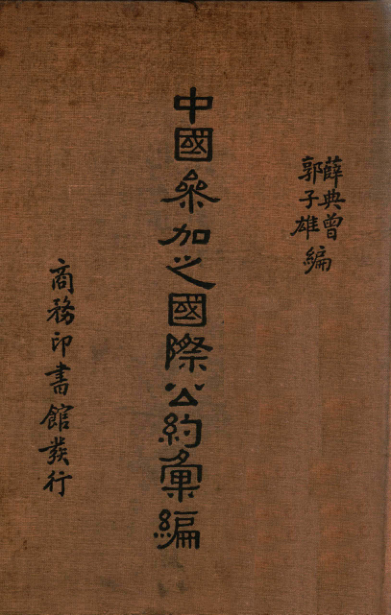 薛典曾
郭子雄編
中國參加之國際公約彙編
商務印書館發行